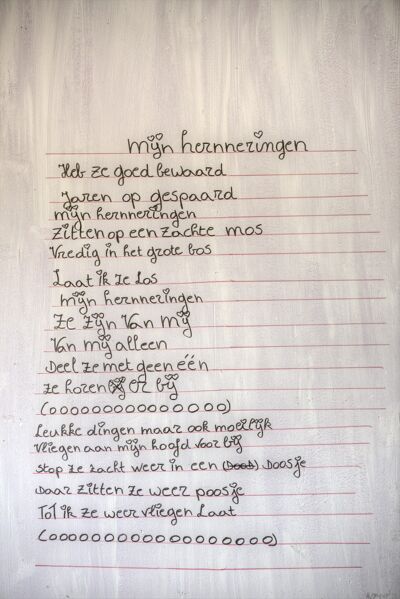 mijn hernneringen
Heb ze goed bewaard
Jaren op gespaard
mijn hernneringen
zitten op een zachte mos
Vredig in het grote bos
Laat ik ze los
mijn hernneringen
ze zijn van mij
Van mij alleen
Deel ze met geen één
ze horen er bij
(ooooooooooooooo)
Leukke dingen maar ook moeilijk
Vliegen aan mijn hoofd voor bij
stop ze zacht weer in een (Doos) Doosje
Daar zitten ze weer poosje
Tot ik ze weer vliegen Laat
(ooooooooooooooooo)